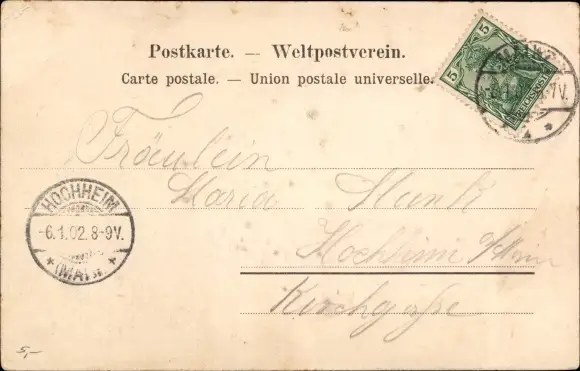 Postkarte. — Weltpostverein.
Carte postale. — Union postale universelle.
5 5
REICHSPOST
-6.1. -7V.
Fräulein
Maria
Hochheim a/Main
Kirchgaße
HOCHHEIM
-6.1.02.8-9V.
* (MAIN) *
5,-